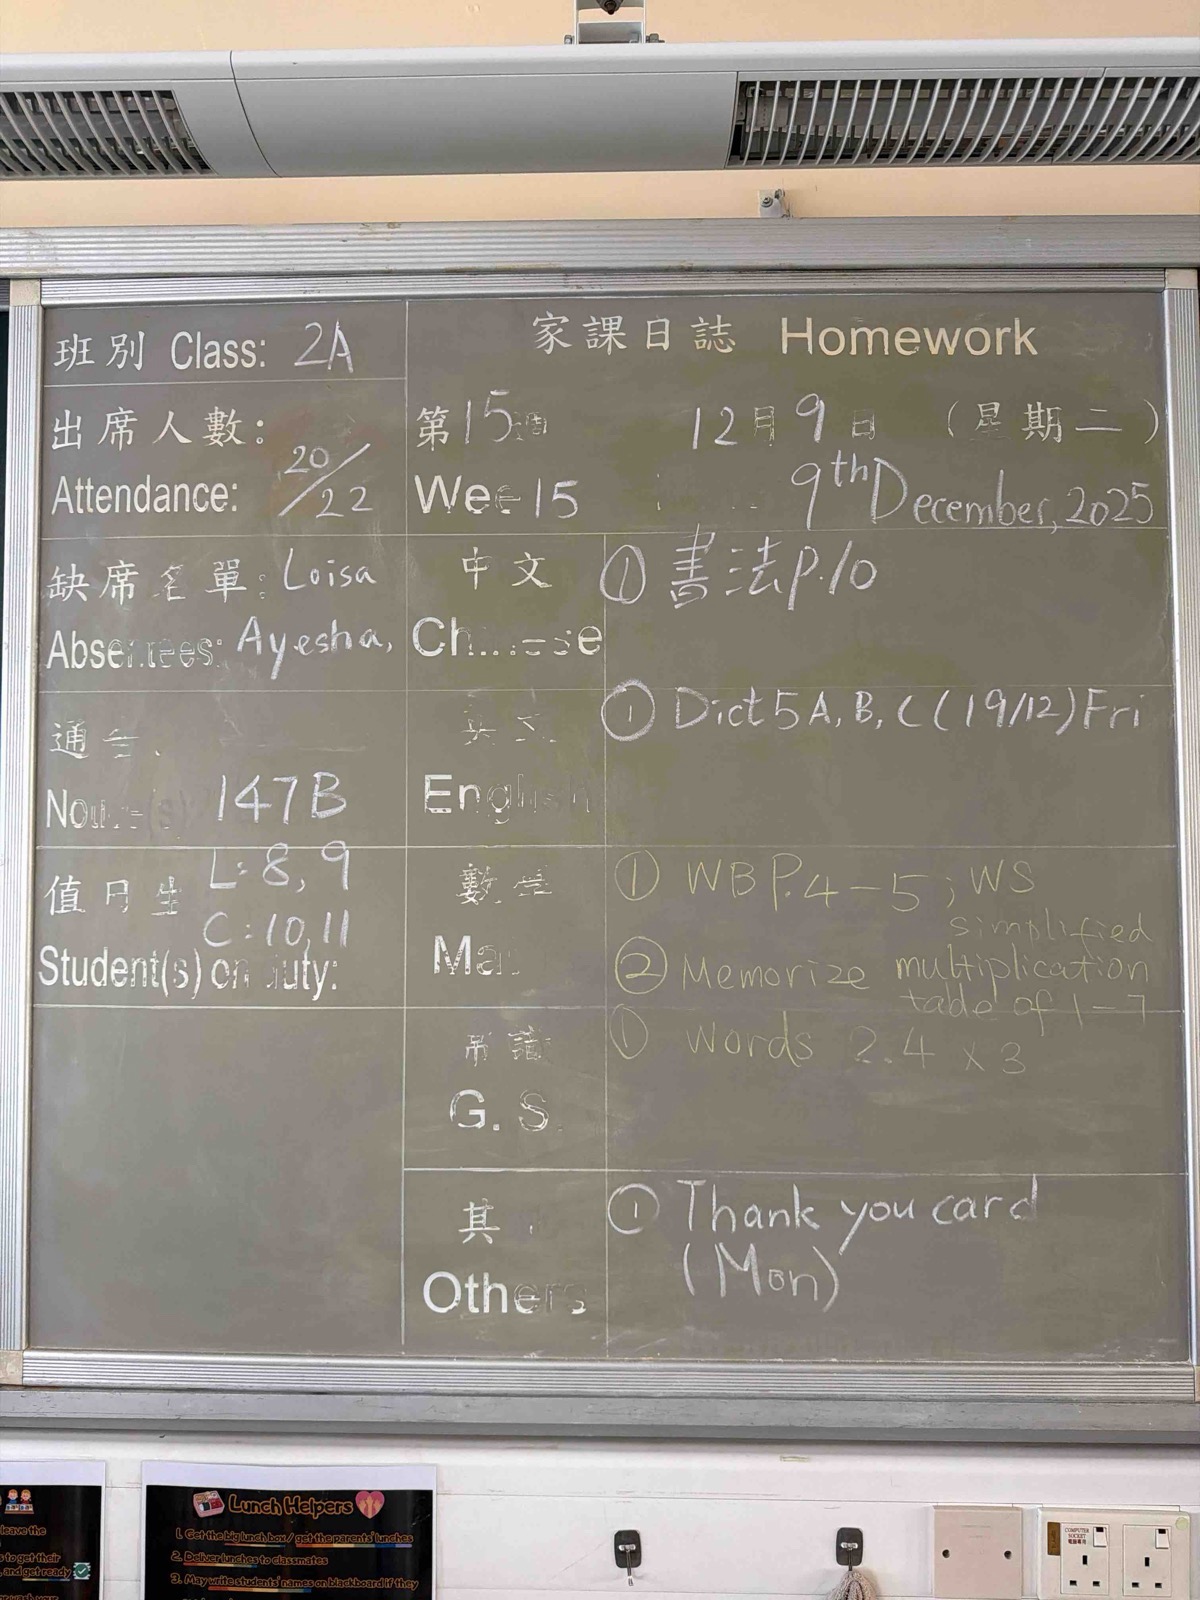 班別 Class: 2A
家課日誌 Homework
出席人數:
Attendance: 20/22
第15週 12月9日 (星期二)
Wee 15 9th December, 2025
缺席名單: Loisa
Absentees: Ayesha,
中文
Chinese
① 書法P.10
通告
Notice(s) 147B
英文
English
① Dict 5A, B, C (19/12) Fri
值日生 L: 8, 9
C: 10, 11
Student(s) on duty:
數學
Ma
① WB P.4-5; WS
simplified
② Memorize multiplication
table of 1-7
常識
G. S.
① Words 2.4 x 3
其
Others
① Thank you card
(Mon)
Lunch Helpers
1. Get the big lunch box / get the parents' lunches
2. Deliver lunches to classmates
3. May write students' names on blackboard if they
leave the
s to get their
, and get ready